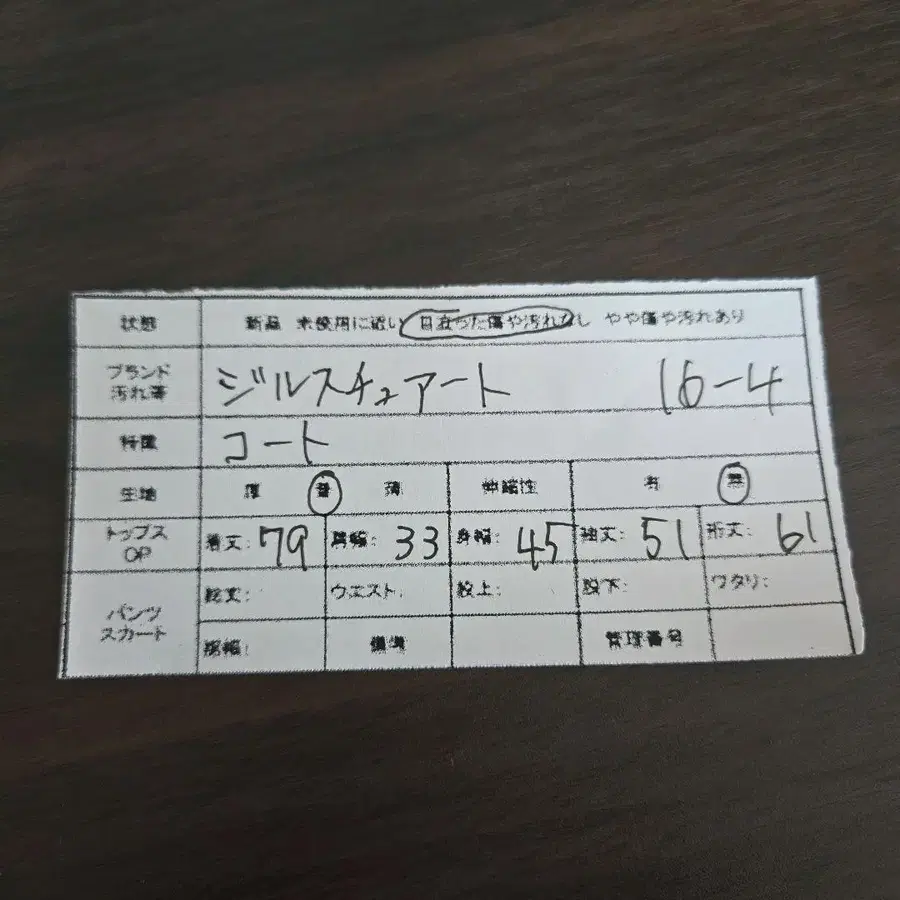 状態 新品 未使用に近い 目立った傷や汚れなし やや傷や汚れあり
ブランド ジルスチュアート 16-4
汚れ等
特徴 コート
生地 厚 普 薄 伸縮性 有 無
トップス OP 着丈: 79 肩幅: 33 身幅: 45 袖丈: 51 裄丈: 61
パンツ スカート 総丈: ウエスト: 股上: 股下: ワタリ:
裾幅: 備考 管理番号